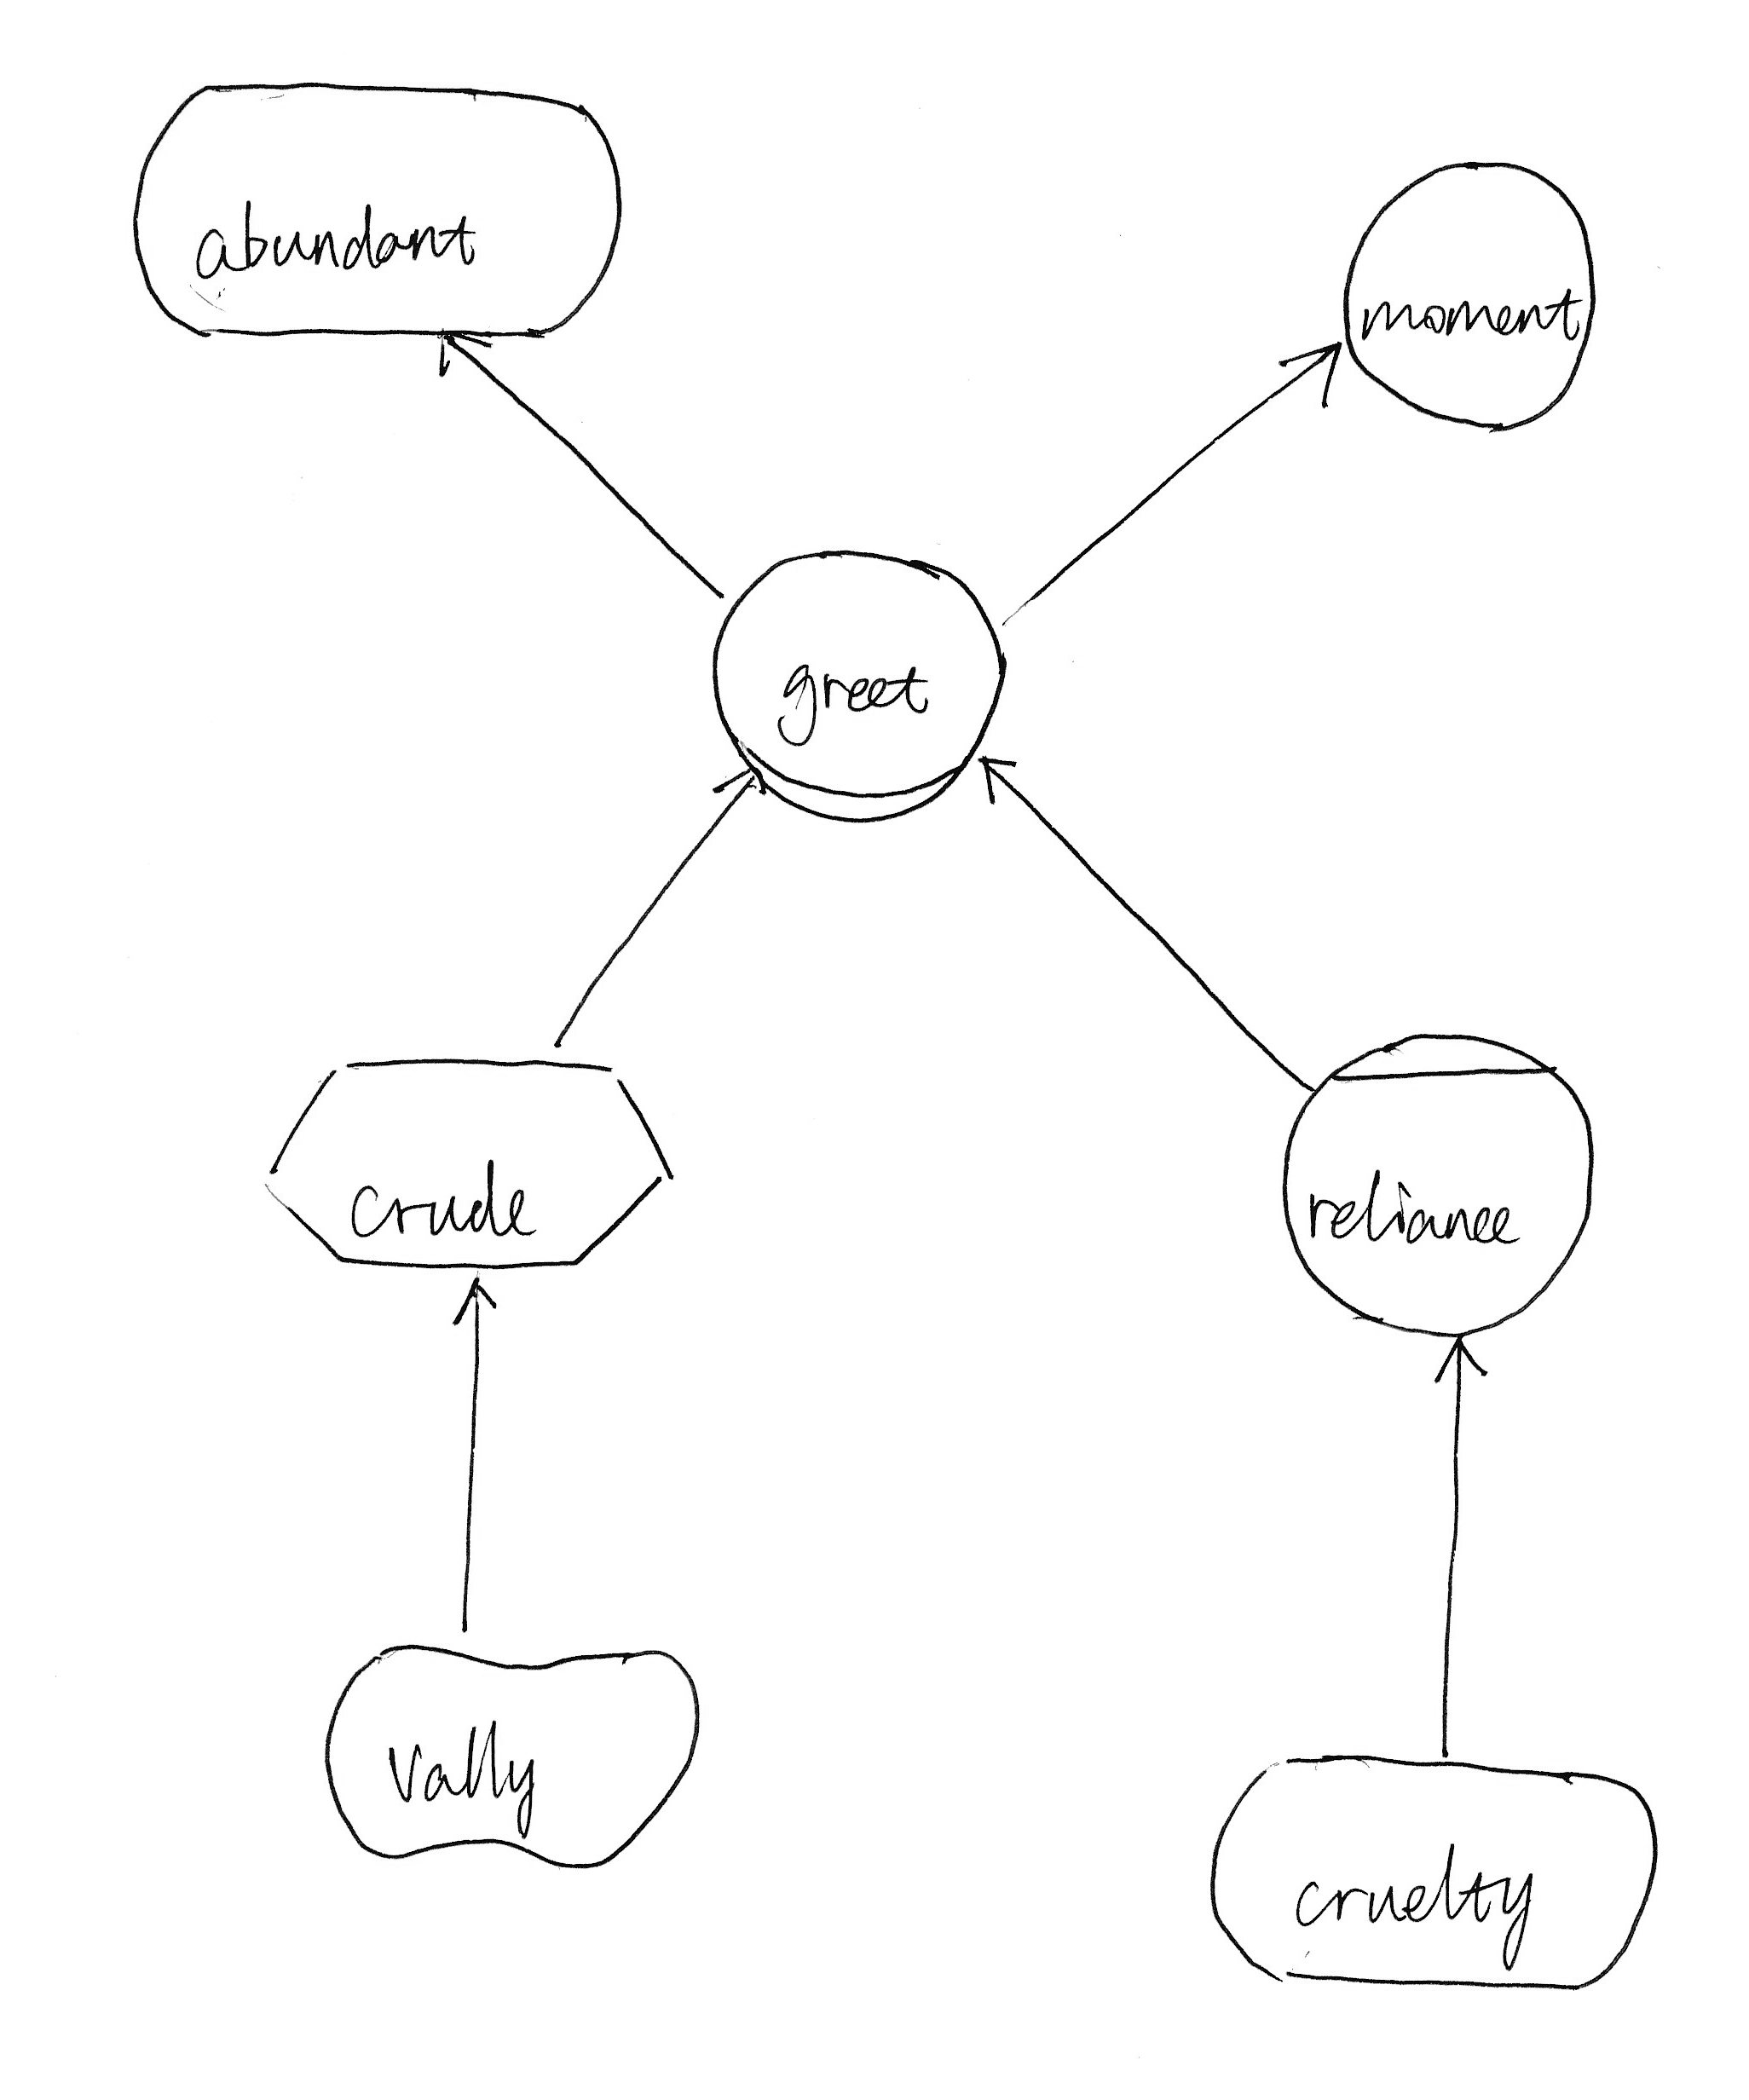 abundant
moment
greet
crude
reliance
vally
cruelty